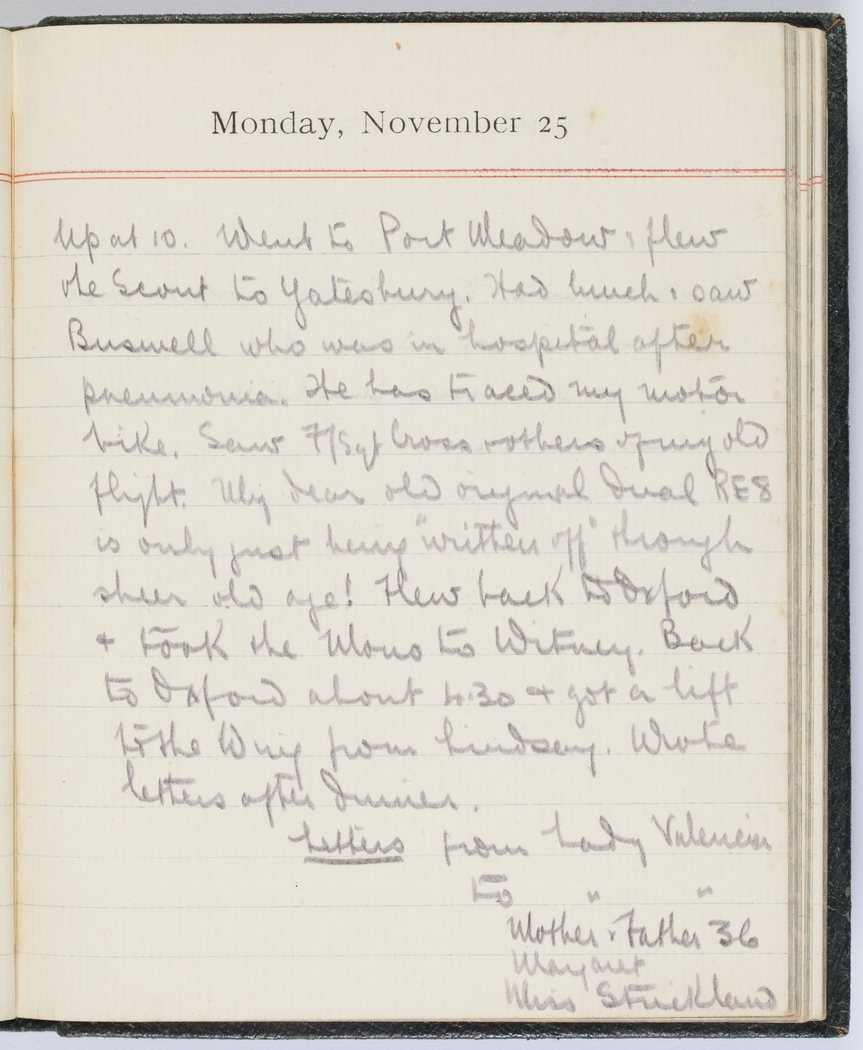 Monday, November 25
Up at 10. Went to Port Meadow & flew
the Scout to Yatesbury. Had lunch & saw
Buswell who was in hospital after
pneumonia. He has traced my motor
bike. Saw F/Sgt Cross & others of my old
flight. My dear old original dual RE8
is only just being "written off" through
sheer old age! Flew back to Oxford
+ took the Mono to Witney. Back
to Oxford about 4.30 + got a lift
to the Wing from Lindsay. Wrote
letters after dinner.
Letters from Lady Valencia
to " "
Mother & Father 36
Margaret
Miss Strickland